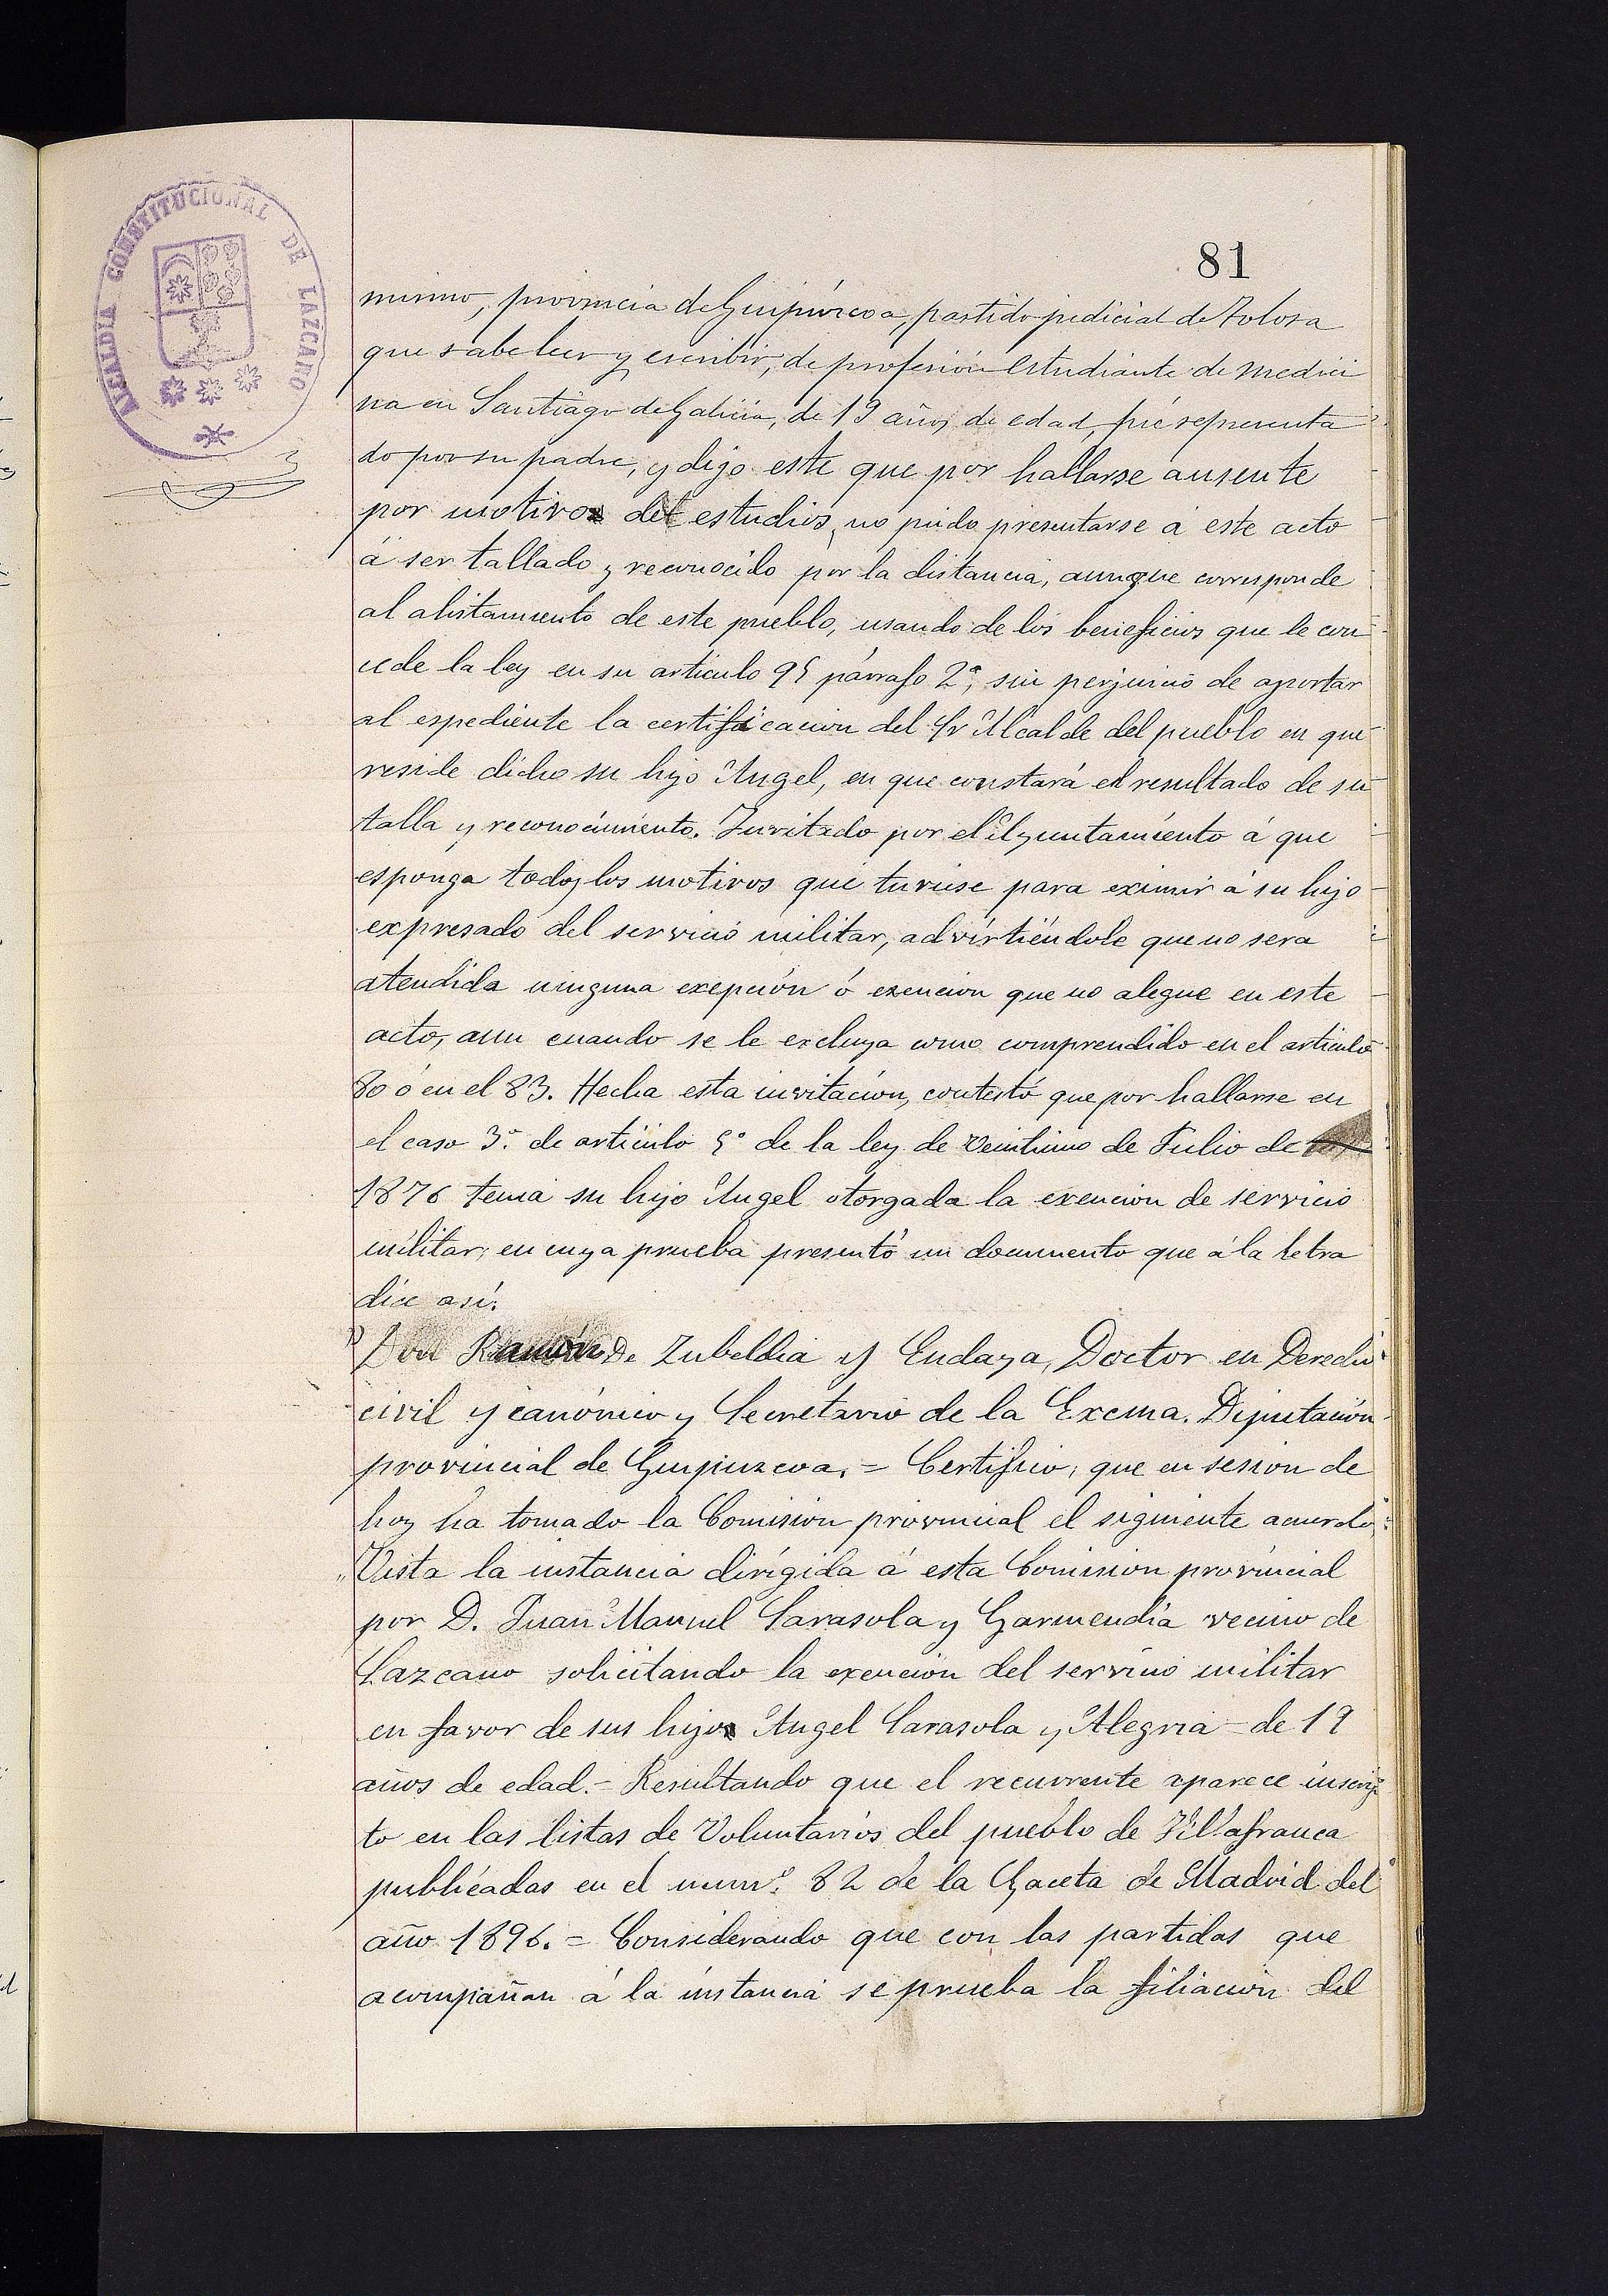 ALCALDIA CONSTITUCIONAL DE LAZCANO
81
mismo, provincia de Guipúrcoa, partido judicial de Tolosa
que sabe leer y escribir, de profesión estudiante de medici
na en Santiago de Galicia, de 19 años de edad, fué representa
do por su padre, y dijo este que por hallarse ausente
por motivos de estudios, no pudo presentarse á este acto
á ser tallado y reconocido por la distancia, aunque corresponde
al alistamiento de este pueblo, usando de los beneficios que le con
cede la ley en su artículo 95 párrafo 2º, sin perjuicio de aportar
al espediente la certificacion del Sr Alcalde del pueblo en que
reside dicho su hijo Angel, en que constará el resultado de su
talla y reconocimiento. Invitado por el Ayuntamiento á que
esponga todos los motivos que tuviese para eximir á su hijo
expresado del servicio militar, advirtiéndole que no sera
atendida ninguna exepción ó exencion que no alegue en este
acto, aun cuando se le excluya como comprendido en el artículo
80 ó en el 83. Hecha esta invitación, contestó que por hallarse en
el caso 3º de artículo 5º de la ley de veintiuno de Julio de
1876 tenia su hijo Angel otorgada la exencion de servicio
militar; en cuya prueba presentó un documento que á la letra
dice así:
"Don Ramón de Zubeldia y Endaya, Doctor en Derecho
civil y canónico y Secretario de la Excma. Diputación
provincial de Guipuzcoa. = Certifico; que en sesion de
hoy ha tomado la Comision provincial el siguiente acuerdo:
"Vista la instancia dirigida á esta Comision provincial
por D. Juan Manuel Sarasola y Garmendia vecino de
Lazcano solicitando la exencion del servicio militar
en favor de sus hijo Angel Sarasola y Alegria - de 19
años de edad. = Resultando que el recurrente aparece inscrip
to en las listas de Voluntarios del pueblo de Villafranca
publicadas en el numº. 82 de la Gaceta de Madrid del
año 1896. = Considerando que con las partidas que
acompañan á la instancia se prueba la filiacion del